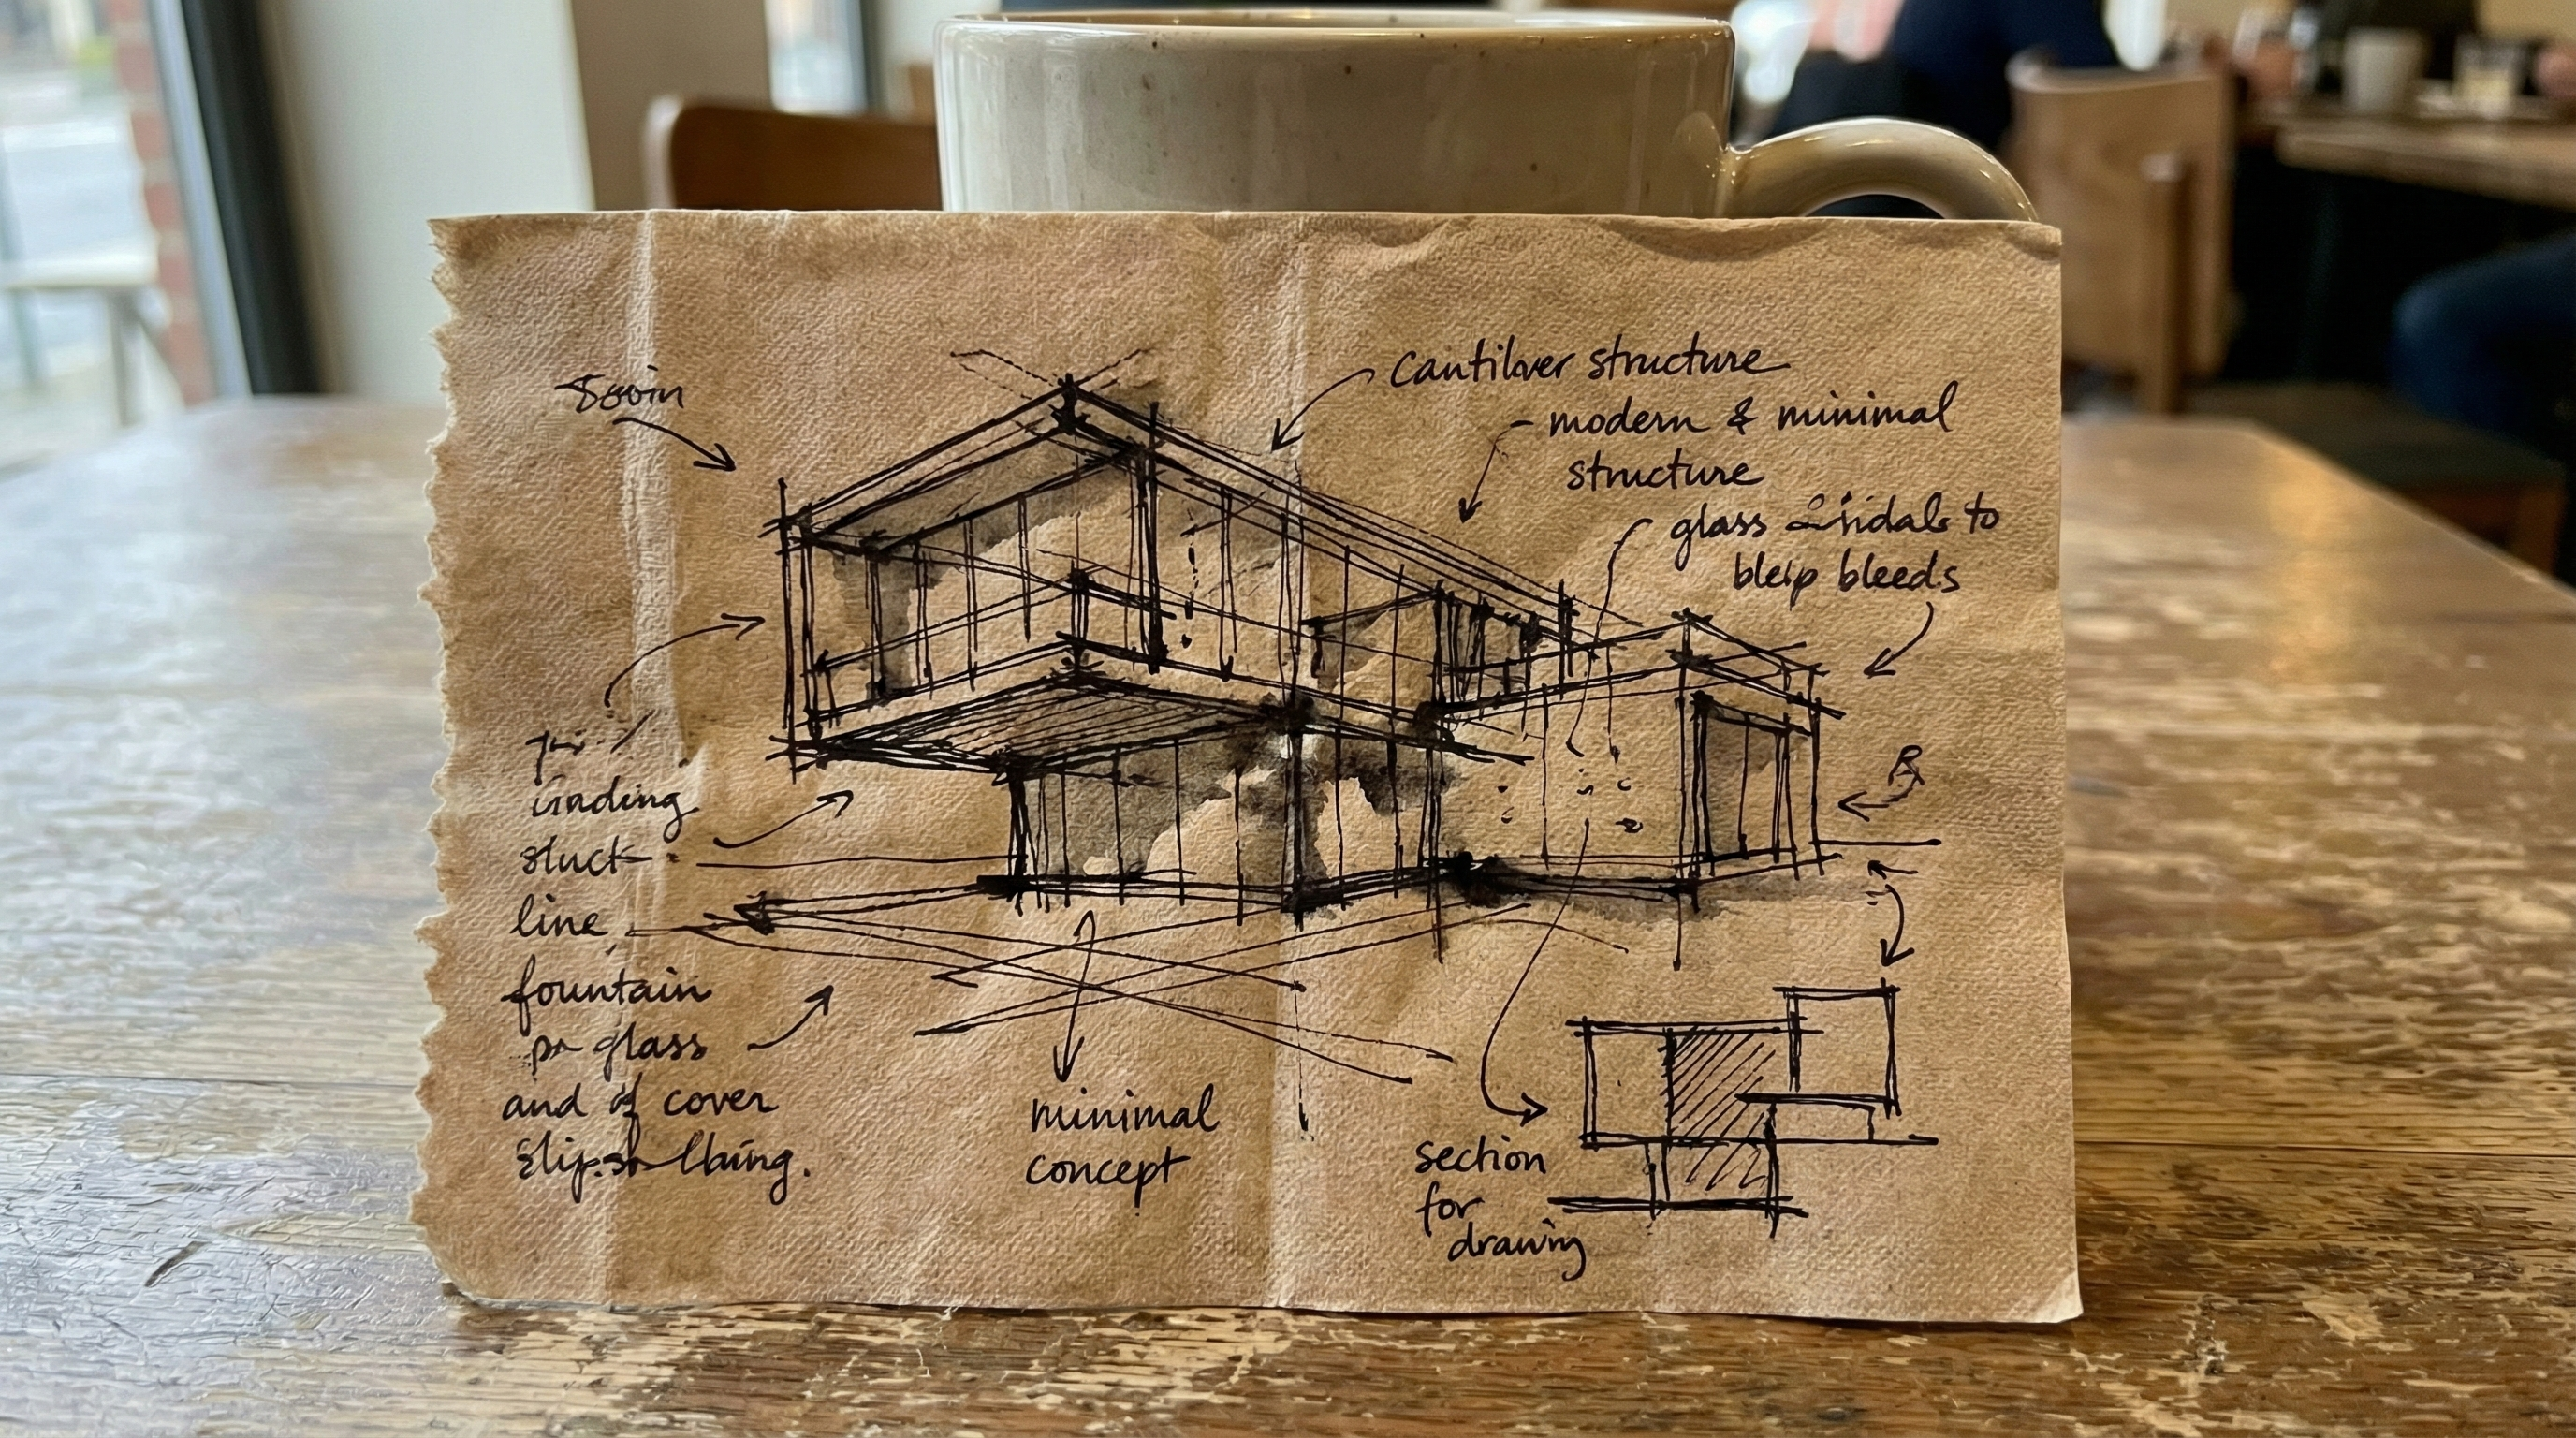 Cantilver structure
modern & minimal
structure
glass to
bleip bleeds
stuct
line
fountain
glass
and of cover
minimal
concept
section
for
drawing